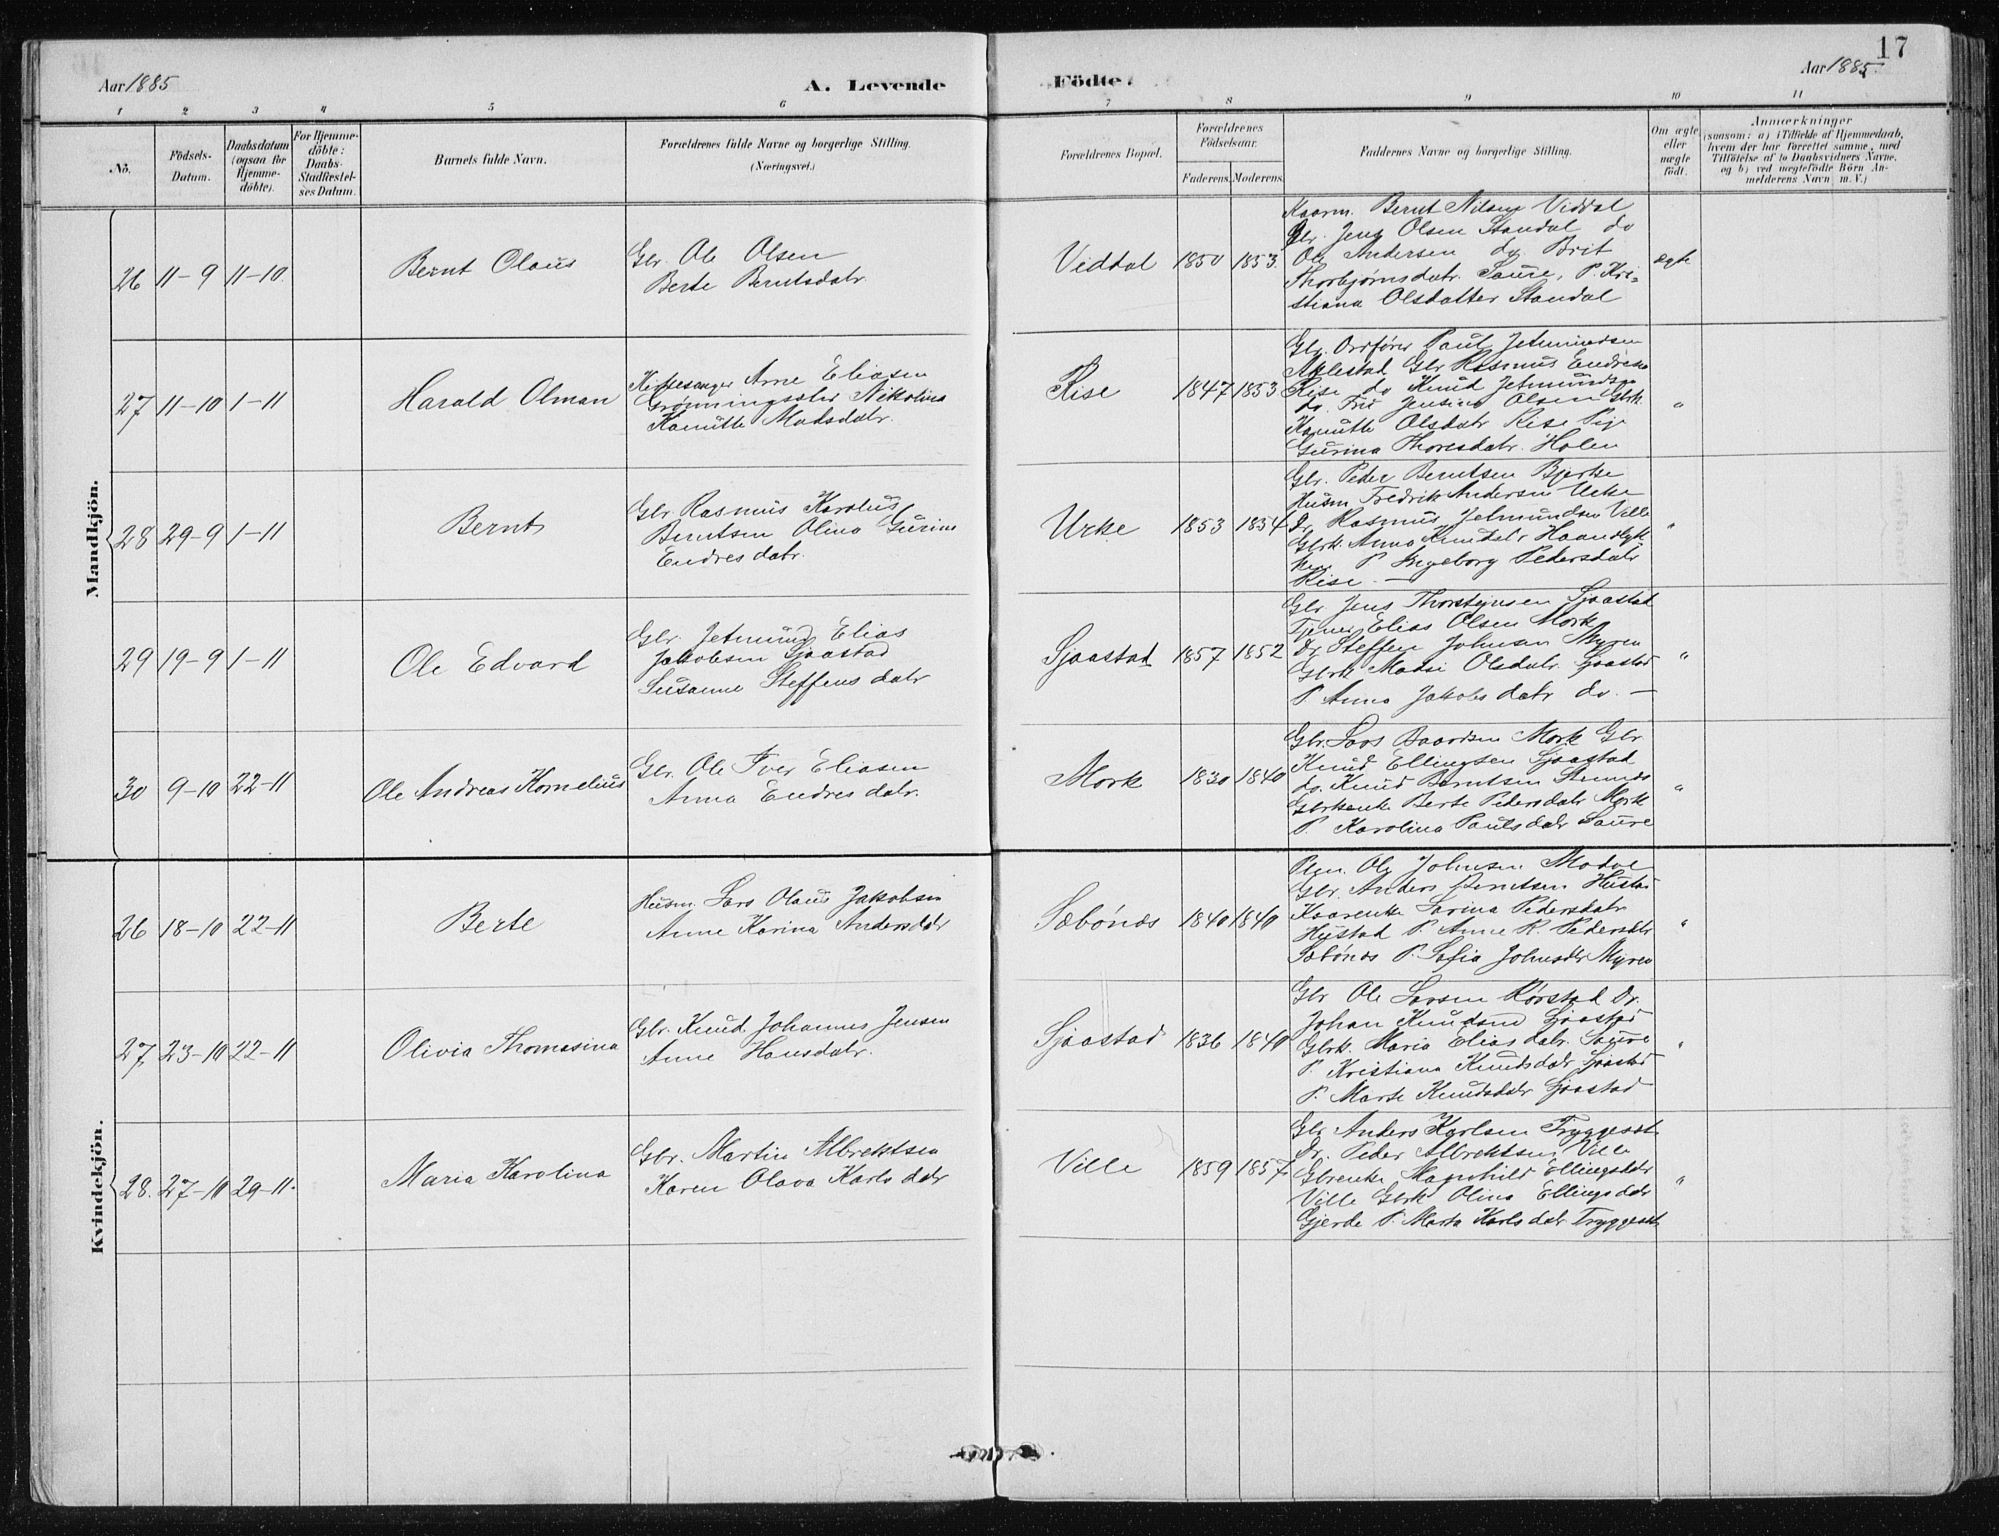 17
Aar 1885
A. Levende
Födte.
Aar 1885.
1 2 3 4 5 6 7 8 9 10 11
No.
Födsels-
Datum.
Daabsdatum
(ogsaa for
Hjemme-
döbte).
For Hjemme-
döbte:
Daabs-
Stadfæstel-
ses Datum.
Barnets fulde Navn.
Forældrenes fulde Navne og borgerlige Stilling.
(Næringsvei.)
Forældrenes Bopæl.
Forældrenes
Födselsaar.
Faderens. Moderens.
Faddernes Navne og borgerlige Stilling.
Om ægte
eller
uægte
födt.
Anmærkninger
(saasom: a) i Tilfælde af Hjemmedaab,
hvem der har forrettet samme, med
Tilföielse af to Daabsvidners Navne,
og b) ved uægtefödte Börn An-
melderens Navn m. V.)
Mandkjön.
26 11-9 11-10.
Bernt Olaus
Gbr. Ole Olsen
Berte Berntsdatr.
Viddal 1850 1853.
Kaarm. Bernt Nilsen Viddal
Gbr. Jens Olsen Standal do
Ole Andersen do Brit
Thorbjørnsdatr. Saure, P. Kri-
stiana Olsdatter Standal
ægte
27 11-10 1-11
Harald Olman
Kirkesanger Arne Eliasen
Grønningsæter Nikolina
Kanutte Madsdatr.
Rise 1847 1853
Gbr. Ordfører Paul Jetmundsen
Aklestad Gbr Rasmus Endresen
Rise do Knud Jetmundsen
do. Fru Jensine Olsen Gbrk.
Kanutte Olsdatr Rise Pige
Gurina Thoresdatr. Holen
"
28 29-9 1-11
Bernt
Gbr. Rasmus Karolus
Berntsen Olina Gurine
Endresdatr.
Urke 1853 1854
Gbr. Peder Berntsen Bjerke
Husm Fredrik Andersen Urke
Dr. Rasmus Jetmundsen Ville
Gbrk. Anna Knudsdr Haandlyk-
ken P Ingeborg Pedersdatr
Rise. —
"
29 19-9 1-11
Ole Edvard
Gbr. Jetmund Elias
Jakobsen Sjaastad
Susanne Steffensdatr
Sjaastad 1857 1852
Gbr Jens Thorsteinsen Sjaastad
Tjener Elias Olsen Mork
Dr Steffen Johnsen Myren
Gbrk Madsi Olsdatr. Sjaastad
P Anna Jakobsdatr do. —
"
30 9-10 22-11
Ole Andreas Kornelius
Gbr. Ole Iver Eliasen
Anna Endresdatr.
Mork 1830 1840
Gbr. Lars Baardsen Mork Gbr
Knud Ellingsen Sjaastad
do. Knud Berntsen
Gbrkenke Berte Pedersdatr Mork
P. Karolina Paulsdatr Saure
"
Kvindekjön.
26 18-10 22-11
Berte
Husm. Lars Olaus Jakobsen
Anne Karina Andersdatr
Sæbönæs 1840 1840
Ole Johnsen
Gbr. Anders Berntsen Hustad
Kaarenke Sarina Pedersdatr
Hustad P. Anne R. Pedersdtr
Sæbönæs P. Sofia Johnsdtr Myren
"
27 23-10 22-11
Olivia Thomasina
Gbr. Knud Johannes Jensen
Anne Hansdatr.
Sjaastad 1836 1840
Gbr Ole Larsen Rörstad Dr.
Johan Knudsen Sjaastad
Gbrk. Maria Eliasdatr. Saure
P. Kristiana Knudsdatr Sjaastad
P. Marte Knudsdatr Sjaastad
"
28. 27-10 29-11.
Maria Karolina
Gbr. Martin Albrektsen
Karen Olava Karlsdatr
Ville 1859 1857
Gbr Anders Karlsen Tryggestad
Dr. Peder Albrektsen Ville
Gbrenke Magnhild Ellingsdatr
Ville Gbrk Olina Ellingsdatr
Gjerde P. Marta Karlsdatr Tryggestad
"